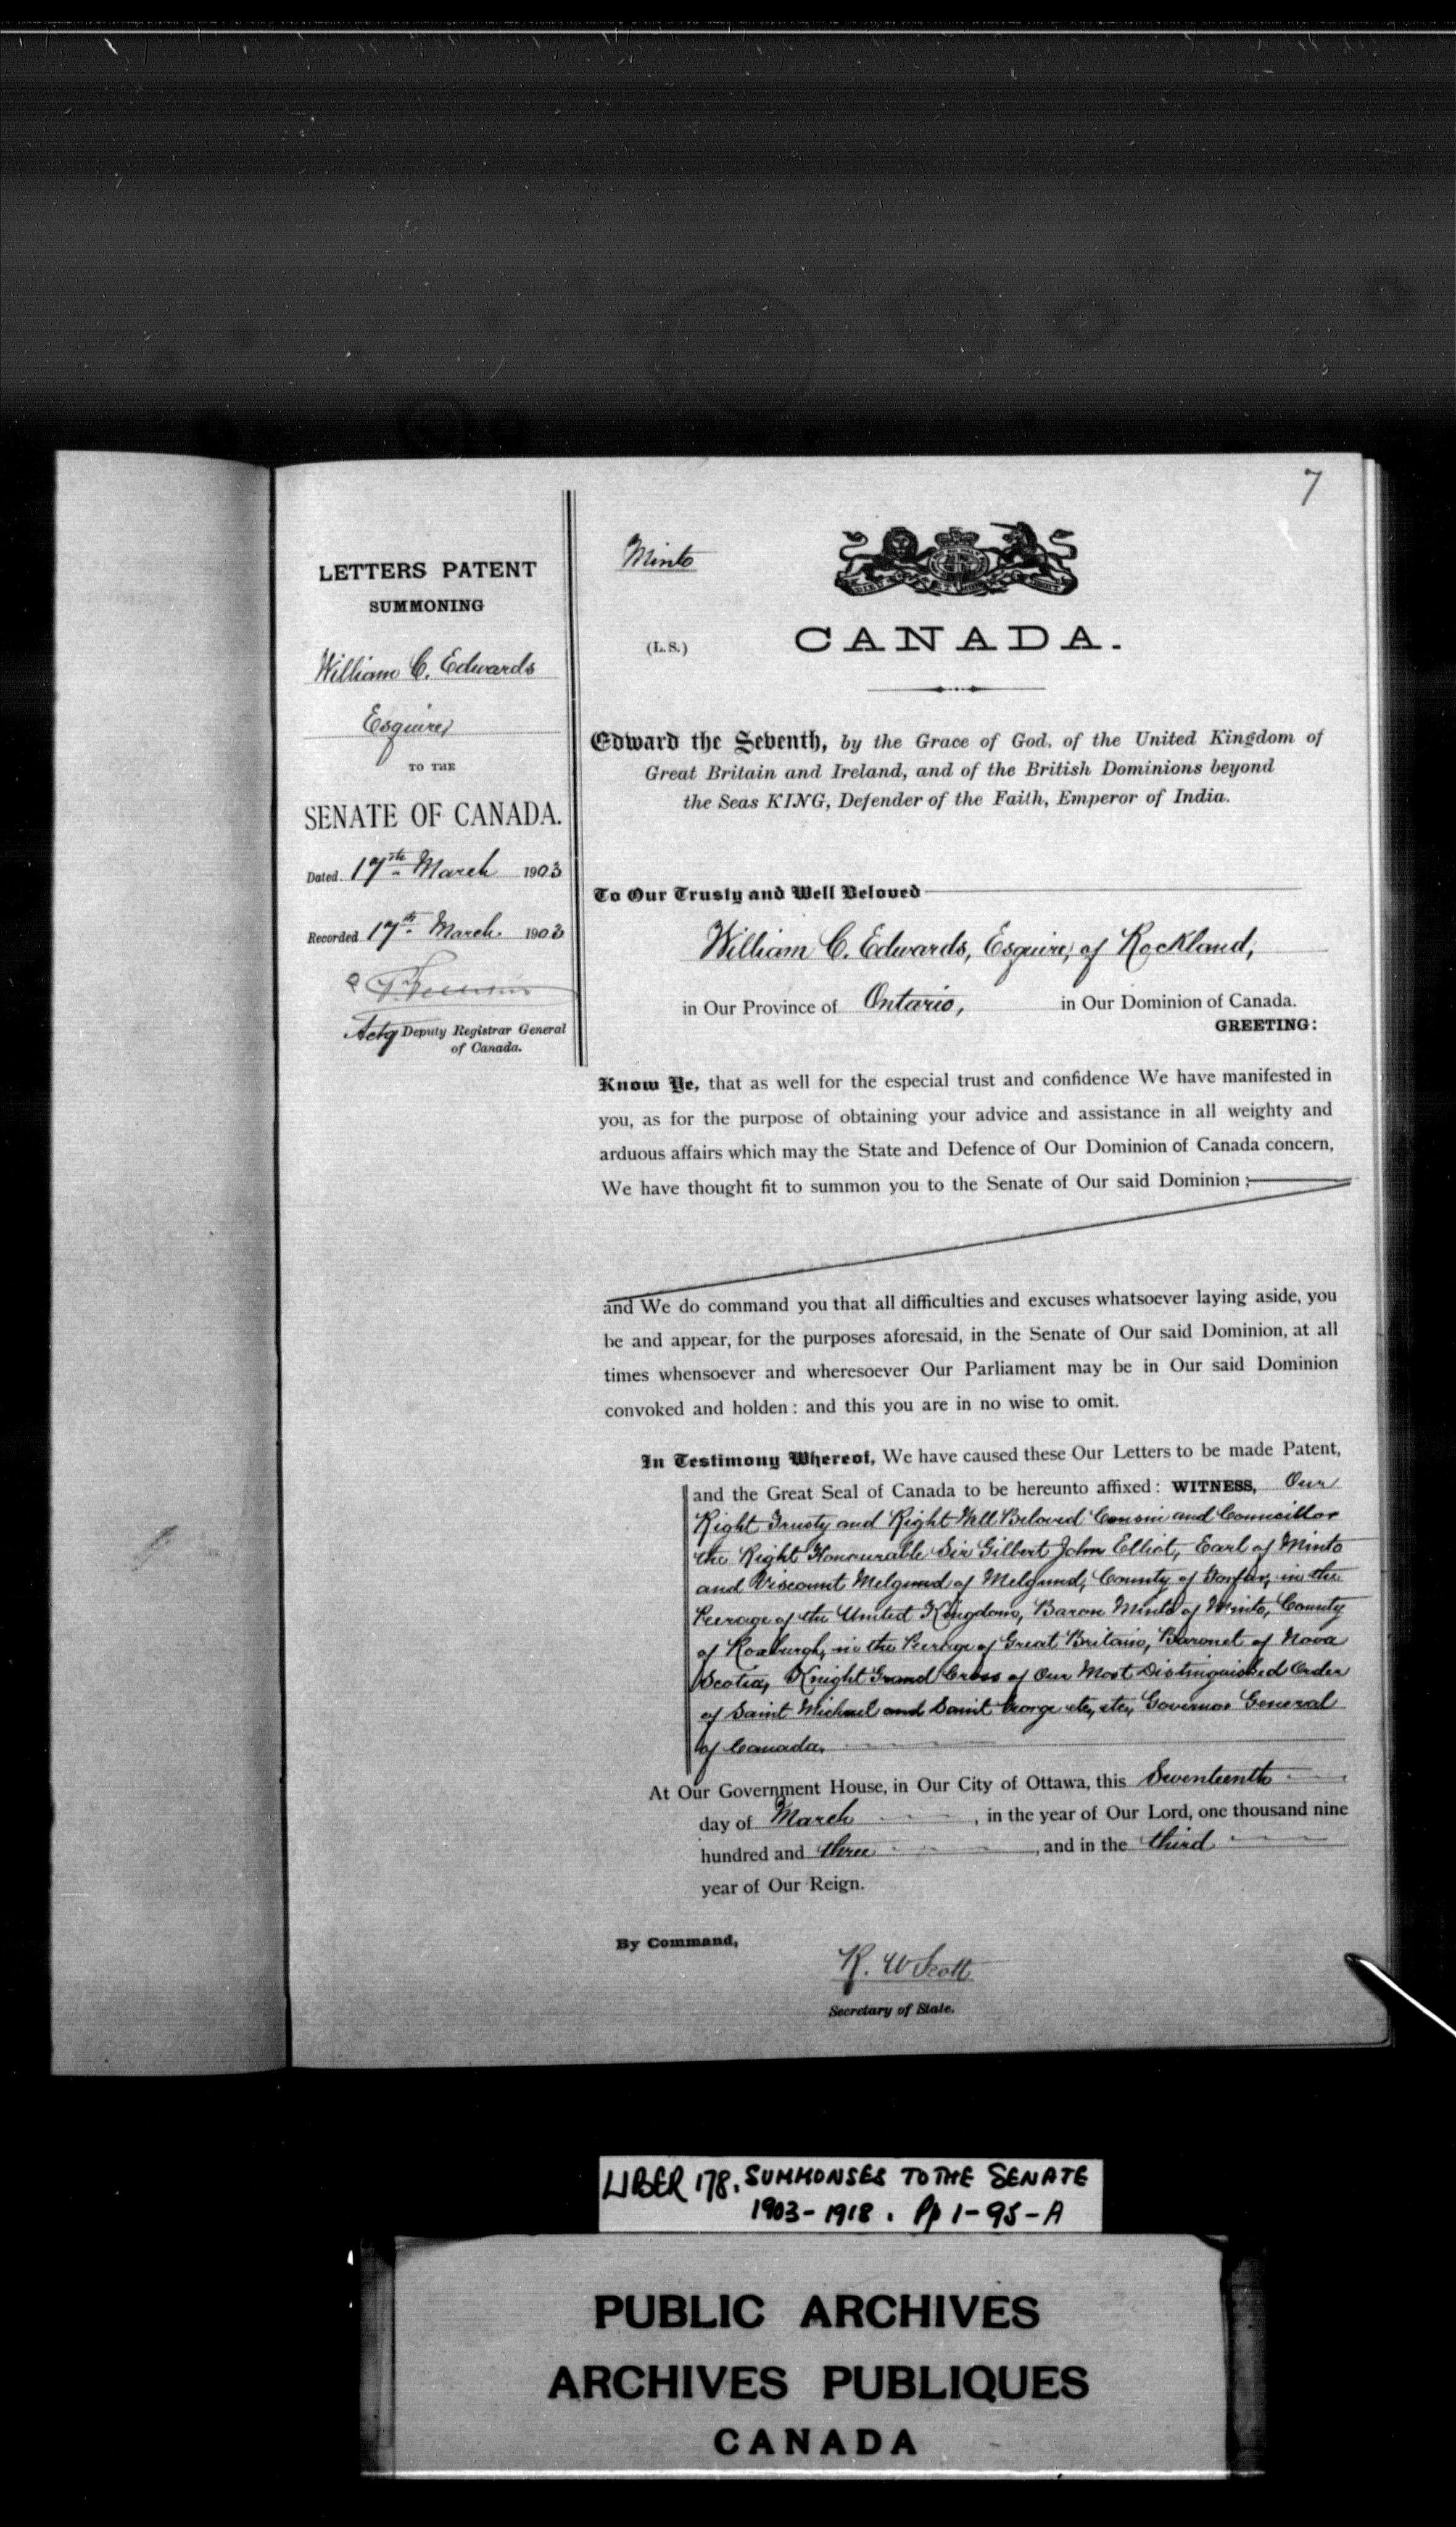 7
LETTERS PATENT
SUMMONING
William C. Edwards
Esquire,
TO THE
SENATE OF CANADA.
Dated 17th March 1903
Recorded 17th March 1903
Actg Deputy Registrar General
of Canada.
Minto
(L.S.)
CANADA.
Edward the Seventh, by the Grace of God, of the United Kingdom of
Great Britain and Ireland, and of the British Dominions beyond
the Seas KING, Defender of the Faith, Emperor of India.
To Our Trusty and Well Beloved
William C. Edwards, Esquire, of Rockland,
in Our Province of Ontario, in Our Dominion of Canada.
GREETING:
Know Ye, that as well for the especial trust and confidence We have manifested in
you, as for the purpose of obtaining your advice and assistance in all weighty and
arduous affairs which may the State and Defence of Our Dominion of Canada concern,
We have thought fit to summon you to the Senate of Our said Dominion;
and We do command you that all difficulties and excuses whatsoever laying aside, you
be and appear, for the purposes aforesaid, in the Senate of Our said Dominion, at all
times whensoever and wheresoever Our Parliament may be in Our said Dominion
convoked and holden: and this you are in no wise to omit.
In Testimony Whereof, We have caused these Our Letters to be made Patent,
and the Great Seal of Canada to be hereunto affixed: WITNESS, Our
Right Trusty and Right Well Beloved Cousin and Councillor
the Right Honourable Sir Gilbert John Elliot, Earl of Minto
and Viscount Melgund of Melgund, County of Forfar, in the
Peerage of the United Kingdom, Baron Minto of Minto, County
of Roxburgh, in the Peerage of Great Britain, Baronet of Nova
Scotia, Knight Grand Cross of Our Most Distinguished Order
of Saint Michael and Saint George etc, etc, Governor General
of Canada.
At Our Government House, in Our City of Ottawa, this Seventeenth
day of March, in the year of Our Lord, one thousand nine
hundred and three, and in the third
year of Our Reign.
By Command,
R. W Scott
Secretary of State.
LIBER 178. SUMMONSES TO THE SENATE
1903-1918. Pp 1-95-A
PUBLIC ARCHIVES
ARCHIVES PUBLIQUES
CANADA